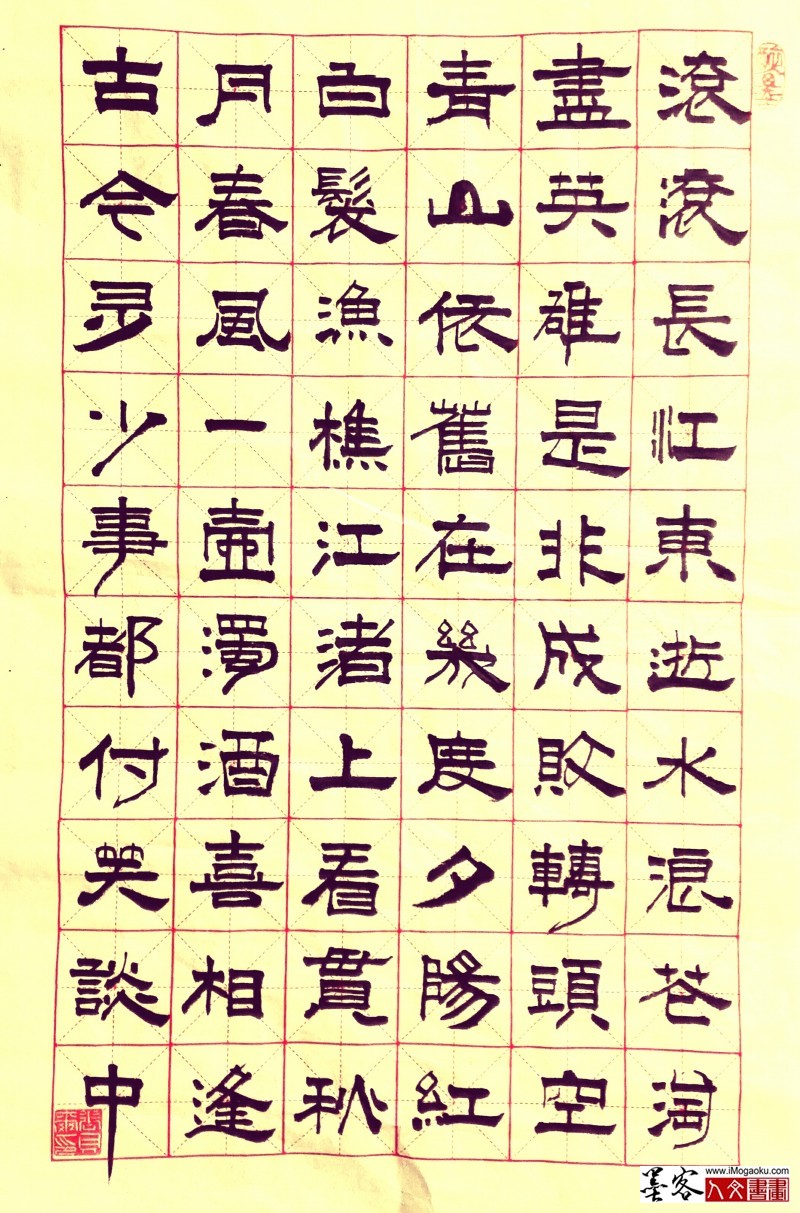 滾滾長江東逝水浪花淘
盡英雄是非成敗轉頭空
青山依舊在幾度夕陽紅
白髮漁樵江渚上看貫秋
月春風一壺濁酒喜相逢
古今多少事都付笑談中
墨客
www.iMogaoku.com
人文書畫